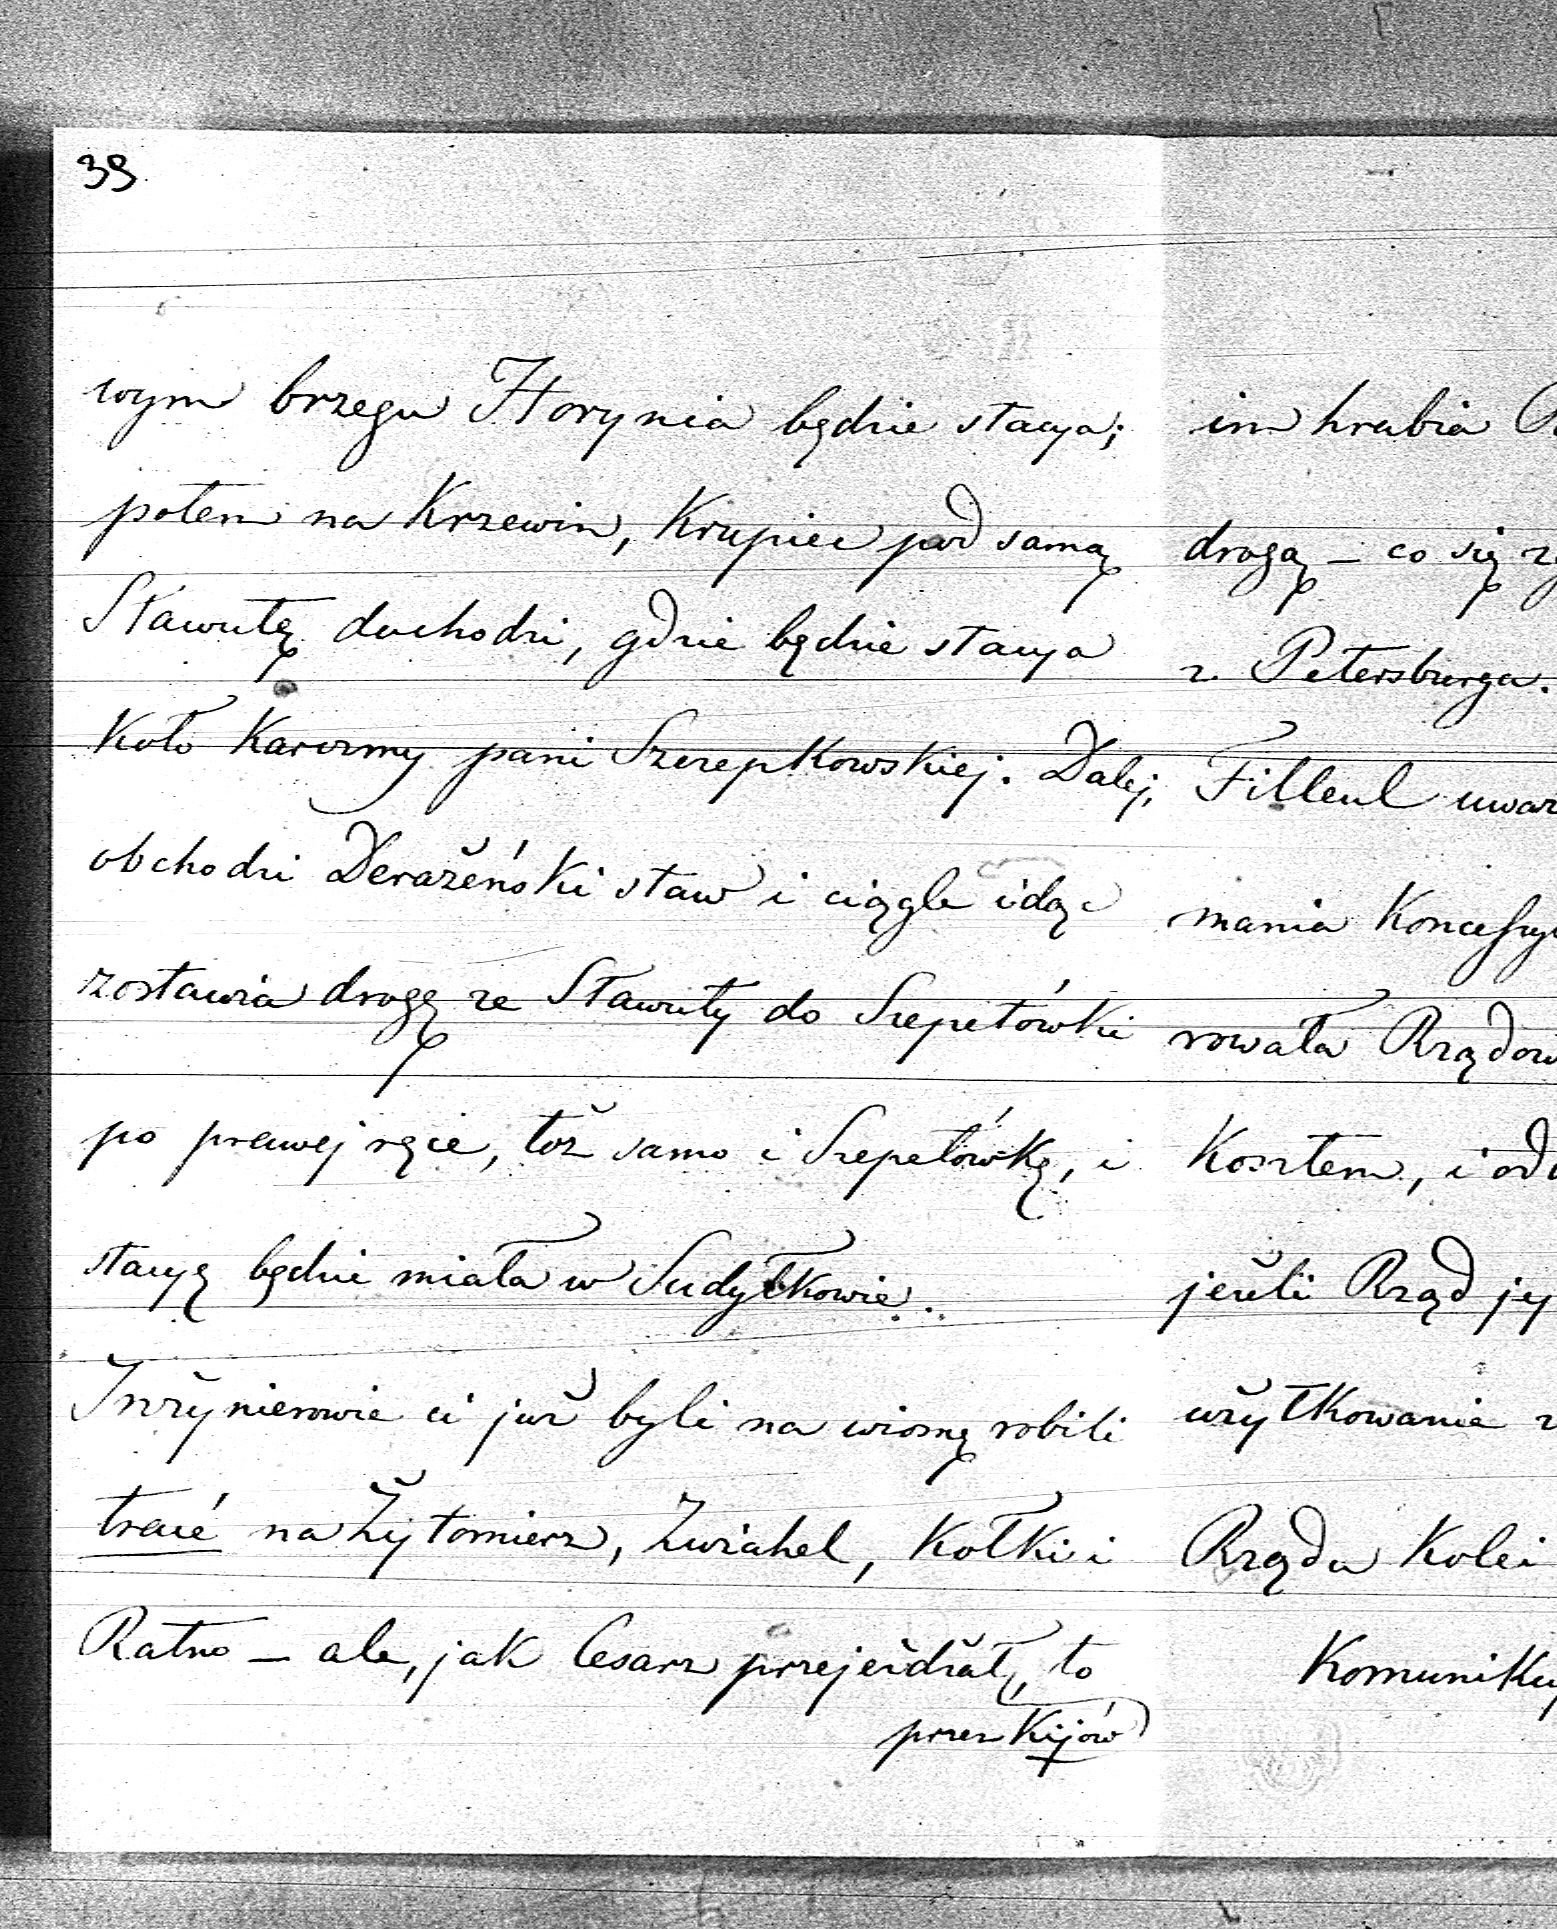 39
wym brzegu Horynia będzie stacya;
potem na Krzewin, Krupiec pod samą
Sławutę dochodzi, gdzie będzie stacya
koło karczmy pani Szczepkowskiej. Dalej,
obchodzi Derażeński staw i ciągle idąc
zostawia drogę ze Sławuty do Szepetówki
po prawej ręce, toż samo i Szepetówkę, i
stacyę będzie miała w Sudyłkowie.
Inżynierowie ci już byli na wiosnę robili
tracé na Żytomierz, Zwiahel, Kołki i
Ratno – ale, jak Cesarz przejeżdżał, to
przez Kijów
im hrabia
drogą – co się
z Petersburga.
Filleul
mania
rowała
Kosztem, i
jeżeli Rząd
użytkowanie
Rządu Kolei